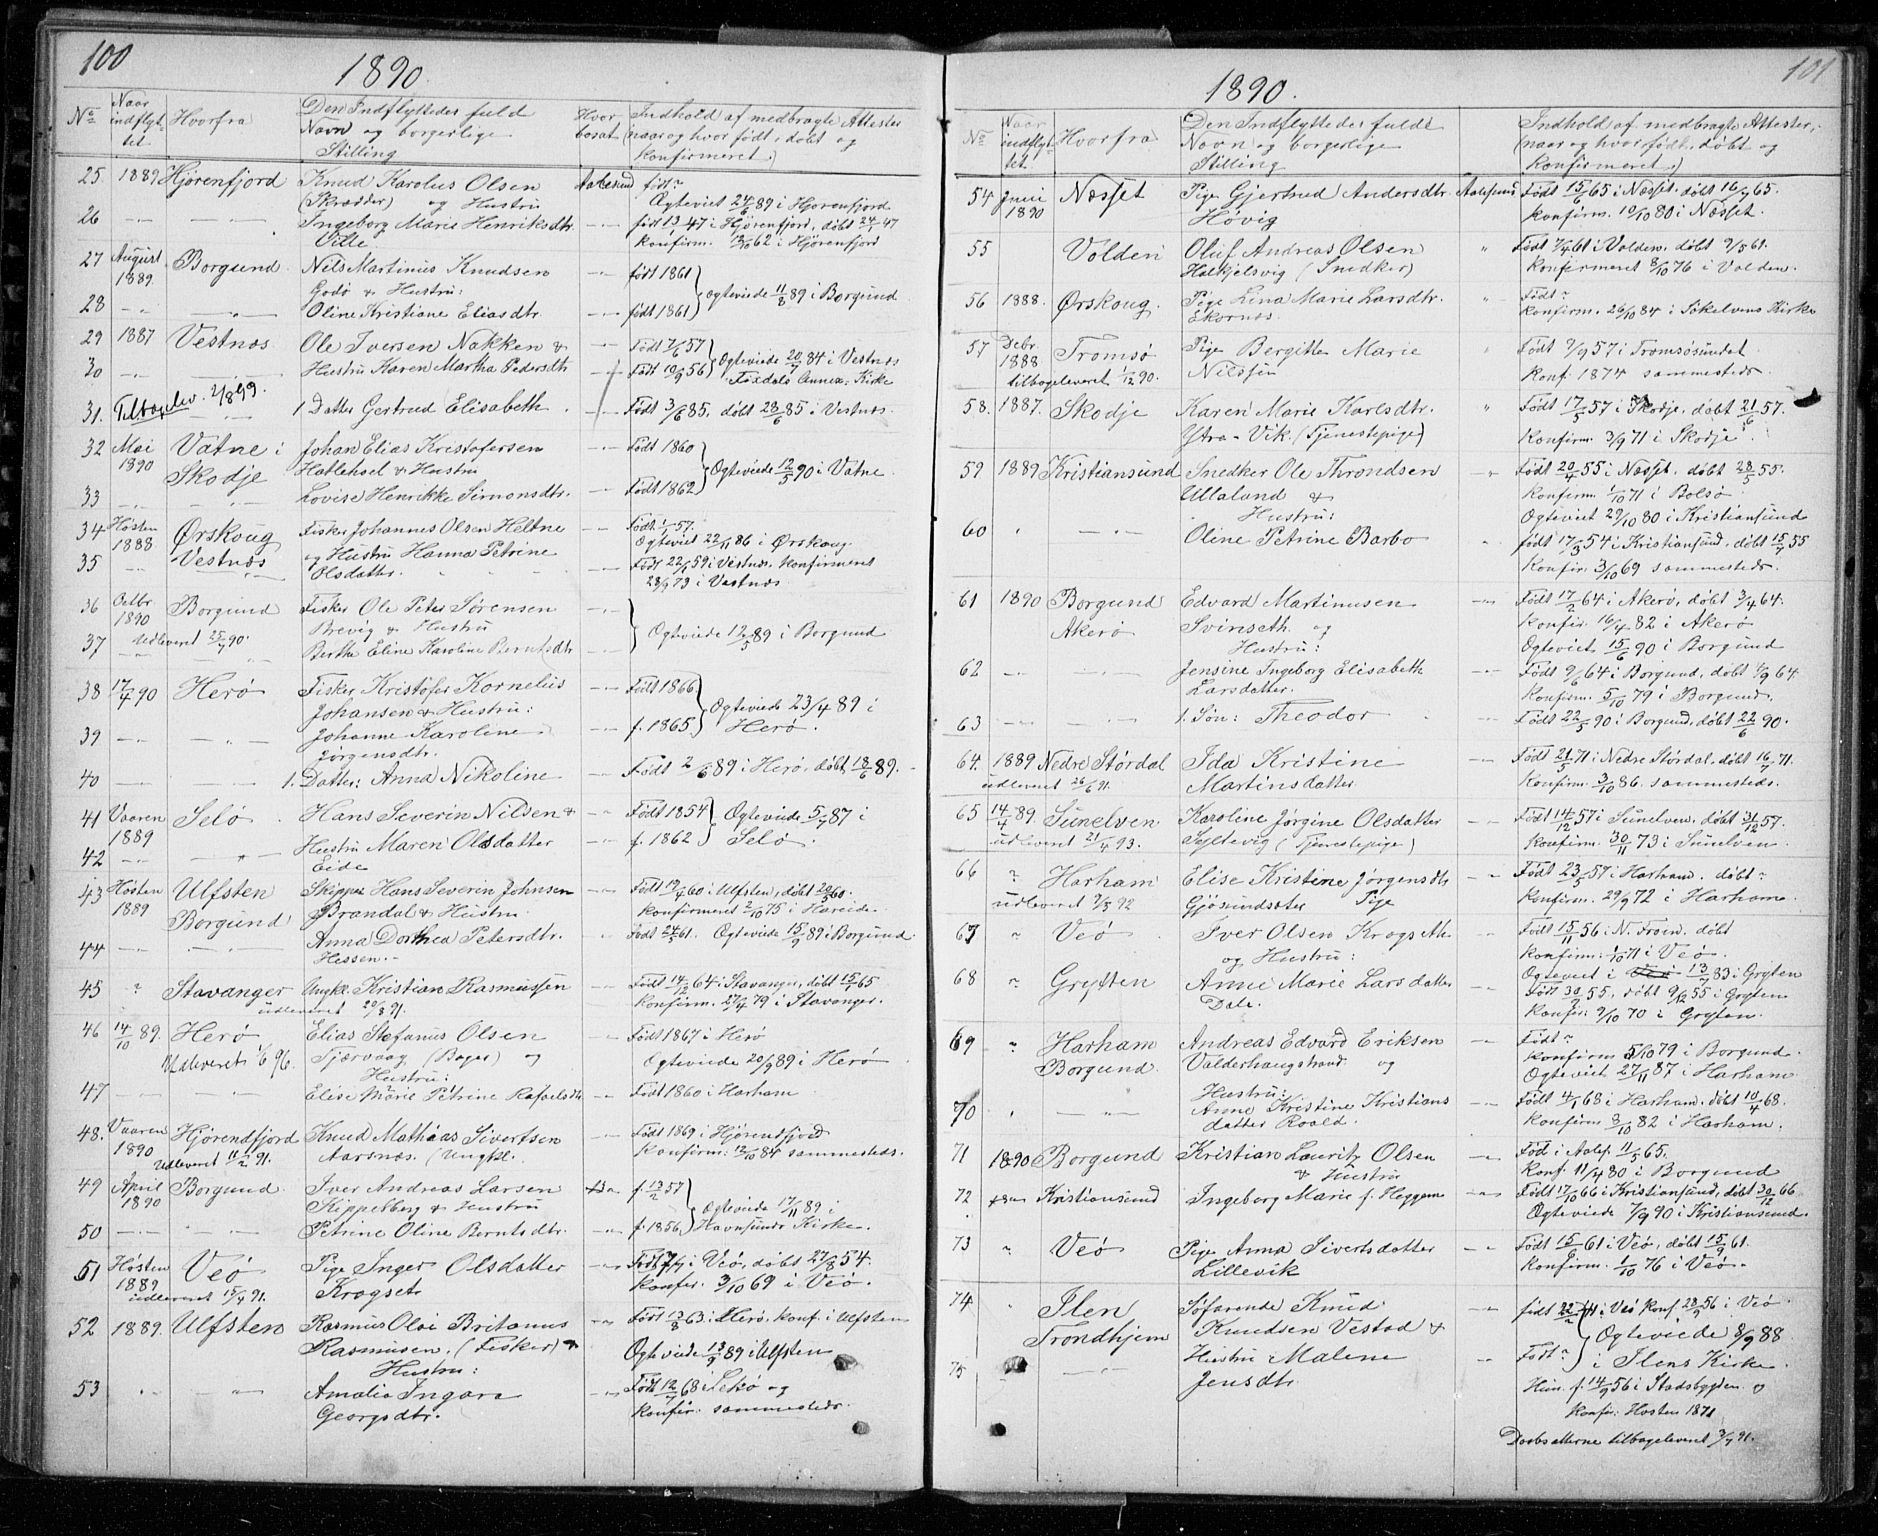 100
1890.
No
Naar indflyt- tet
Hvorfra
Den Indflyttedes fuld Navn og borgerlige Stilling
Hvor bosat
Indhold af medbragte Attester (naar og hvor født, døbt og konfirmeret.)
25 1889 Hjörenfjord Knud Karolus Olsen Aalesund født "
(Skrædder) og Hustru Ogteviet 24/6 89 i Hjörenfjord
26 Ingeborg Marie Henriksdtr. født 13/1 47 i Hjörenfjord, døbt 24/1 47
Ville konfirm. 12/10 62 i Hjörenfjord
27 August 1889. Borgund Nils Martinus Knudsen født 1861
Godø & Hustru: Ogteviede 11/8 89 i Borgund
28 Oline Kristiane Eliasdtr. født 1861
29 1887 Vestnæs Ole Iversen Nakken & Født 7/6 57
30 Hustru Karen Martha Pedersdtr Født 10/9 56 Ogteviede 20/7 84 i Vestnæs
Kirke
31. Tilbagelev. 2/8 99. 1 Datter Gertrud Elisabeth Født 3/6 85, døbt 28/6 85 i Vestnæs
32 Mai 1890 Vatne i Johan Elias Kristofersen Født 1860
Skodje Hatlehol & Hustru Ogteviede 12/5 90 i Vatne
33 Lovise Henrikke Simonsdtr. Født 1862
34 Høsten 1888 Ørskoug Fisker Johannes Olsen Heltne Født 1/1 57.
Ogteviet 22/11 86 i Ørskoug
35 Vestnæs og Hustru Hanna Petrine Født 22/1 59 i Vestnæs. konfirmeret
Olsdatter. 28/9 73 i Vestnæs
36 Octbr 1890 Borgund Fisker Ole Peter Sørensen
Brevig & Hustru Ogteviede 12/5 89 i Borgund
37 Udleveret 25/7 90. Berthe Eline Karoline Berntsdtr
38 17/4 90 Herø Fisker Kristofer Kornelius Født 1866
Johansen & Hustru: Ogteviede 23/4 89 i
39 Johanne Karoline f. 1865. Herø.
Jørgensdtr.
40 1. Datter: Anna Nikoline Født 2/6 89 i Herø, døbt 18/6 89.
41 Vaaren 1889 Selø Hans Severin Nilsen & Født 1854 Ogteviede 5/7 87 i
42 Hustru Maren Olsdatter f. 1862 Selø.
Eide
43 Høsten 1889 Ulfsten Skipper Hans Severin Johnsen Født 19/4 60 i Ulfsten, døbt 20/5 60.
Borgund Brandal & Hustru konfirmeret 2/10 75 i Hareide
44 Anna Dorthea Petersdtr. født 24/5 61. Ogteviede 15/9 89 i Borgund.
Hessen.
45 " Stavanger Ungk. Kristian Rasmussen Født 14/12 64 i Stavanger, døbt 15/1 65
udleveret 20/8 91. Konfirm. 27/4 79 i Stavanger.
46 14/10 89. Herø Elias Stefanus Olsen Født 1867 i Herø
Udleveret 1/6 96. Tjørvaag (Bager) og Ogteviede 20/9 89 i Herø
Hustru:
47 Elise Marie Petrine Rafaelsdtr Født 1860 i Harham
48. Vaaren 1890 Hjörendfjord Knud Mathias Sivertsen Født 1869 i Hjörendfjord
Udleveret 11/2 91. Aarsnæs. (Ungkl. Konfirm: 12/10 84 sammesteds.
49 April 1890 Borgund Iver Andreas Larsen f. 13/2 57
Kippelberg & Hustru Ogteviede 17/11 89 i
50 Petrine Oline Berntsdtr. f. 1856 Havnsunds Kirke.
51 Høsten 1889 Veø Pige Inger Olsdatter Født i Veø, døbt 27/8 54.
udleveret 15/4 91. Krogset Konfir. 3/10 69 i Veø.
52 1889. Ulfsten Rasmus Oloi Britanus Født 13/8 63 i Herø. Konf. i Ulfsten
Rasmusen. (Fisker) & Ogteviede 13/9 89 i Ulfsten
Hustru:
53 Amalia Ingara Født 12/7 68 i og
Georgsdtr. konfir. sammesteds.
101
1890.
No
Naar indflyt- tet.
Hvorfra
Den Indflyttedes fulde Navn og borgerlige Stilling
Indhold af medbragte Attester, (naar og hvor født, døbt og konfirmeret.)
54 Juni 1890 Næsset Pige Gjertrud Andersdtr. Aalesund Født 15/6 65 i Næsset, døbt 16/7 65.
Høvig Konfirm. 10/10 80 i Næsset.
55 Volden Oluf Andreas Olsen " Født 7/4 61 i Volden, døbt 9/5 61.
Halkjelsvig (Snedker) konfirmeret 8/10 76 i Volden.
56 1888. Ørskoug. Pige Lina Marie Larsdtr. " Født "
Ekornæs. konfirm. 26/10 84 i Søkelvens Kirke
57 Debr. 1888 Tromsø Pige Bergitte Marie " Født 9/9 57 i Tromsøsundet
tilbageleveret 1/12 90. Nilssen Konf. 1874 sammesteds.
58. 1887. Skodje Karen Marie Karlsdtr. " Født 17/5 57 i Skodje, døbt 21/6 57.
Ytra-Vik. (Tjenestepige) Konfirm. 3/9 71 i Skodje.
59 1889 Kristiansund Snedker Ole Throndsen " Født 20/4 55 i Næsset, døbt 28/5 55.
Ullaland & Konfirm. 1/10 71 i Bolsø
Hustru: Ogteviet 29/10 80 i Kristiansund
60 Oline Petrine Barbo født 17/3 54 i Kristiansund, døbt 15/7 55
Konfir. 3/10 69 sammesteds.
61 1890 Borgund Edvard Martinusen Født 17/2 64 i Akerø, døbt 3/4 64.
Akerø Svinseth. og Konfir. 16/4 82 i Akerø
Hustru: Ogteviet 15/6 90 i Borgund
62 Jensine Ingeborg Elisabeth Født 9/6 64 i Borgund, døbt 4/9 64
Larsdatter. Konfirm. 5/10 79 i Borgund.
63 1. Søn: Theodor Født 22/5 90 i Borgund, døbt 22/6 90.
64. 1889 Nedre Størdal Ida Kristine Født 21/5 71 i Nedre Størdal, døbt 16/7 71.
udleveret 26/6 91. Martinsdatter Konfirm. 3/10 86. sammesteds.
65 14/4 89 Sunelven Karoline Jørgine Olsdatter Født 14/12 57 i Sunelven, døbt 31/12 57.
udleveret 21/4 93. Syltevig (Tjenestepige) Konfirm. 30/11 73 i Sunelven.
66 " Harham Elise Kristine Jørgensdtr Født 23/5 57 i Harham. døbt "
udleveret 7/5 92 Gjøsundsæter Pige Konfirm. 29/9 72 i Harham.
67 " Veø Iver Olsen Krogseth Født 15/11 56 i N. Froin. døbt
og Hustru: Konfirm: 1/10 71 i Veø.
68 " Grytten Anne Marie Larsdatter Ogteviet i 13/7 83 i Grytten
Dale. Født 30/7 55, døbt 9/12 55 i Grytten
Konfir: 9/10 70 i Grytten.
69 " Harham Andreas Edvard Eriksen Født "
Borgund. Valderhaugstrand og Konfirm 5/10 79 i Borgund.
Hustru: Ogteviet 27/11 87 i Harham
70 Anne Kristine Kristians Født 4/1 68 i Harham, døbt 10/4 68.
datter Roald. Konfirm. 8/10 82 i Harham.
71 1890 Borgund Kristian Lauritz Olsen Fød i Aales. 11/5 65.
& Hustru Konf. 11/4 80 i Borgund
72 Kristiansund Ingeborg Marie f. Heggem Født 17/10 66 i Kristiansund, døbt 30/12 66
Ogteviede 7/9 90 i Kristiansund.
73 " Veø Pige Anna Sivertsdatter Født 15/6 61 i Veø, døbt 15/9 61.
Lillevik Konfirm. 1/10 76 i Veø.
74 Ilen Søfarende Knud født 22/2 41 i Veø Konf. 28/9 56 i Veø
Trondhjem Knudsen Vestad & Ogteviede 8/9 88
75 Hustru Malene Født " i Ilens Kirke.
Jensdtr. Hun f. 14/9 56 i Stadsbygden og
Konfir: Høsten 1871
Daabsatterne tilbageleveret 3/7 91.